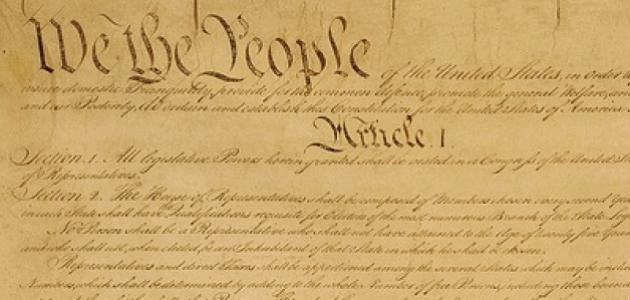 We the People of the United States, in Order to
insure domestic Tranquility, provide for the common defence, promote the general Welfare, and
and our Posterity, do ordain and establish this Constitution for the United States of America
Article. I.
Section. 1. All legislative Powers herein granted shall be vested in a Congress of the United
of Representatives.
Section. 2. The House of Representatives shall be composed of Members chosen every second Year
in each State shall have Qualifications requisite for Electors of the most numerous Branch of the State
No Person shall be a Representative who shall not have attained to the Age of twenty five Years
and who shall not, when elected, be an Inhabitant of that State in which he shall be chosen.
Representatives and direct Taxes shall be apportioned among the several States which may be
Numbers, which shall be determined by adding to the whole Number of free Persons, including those bound